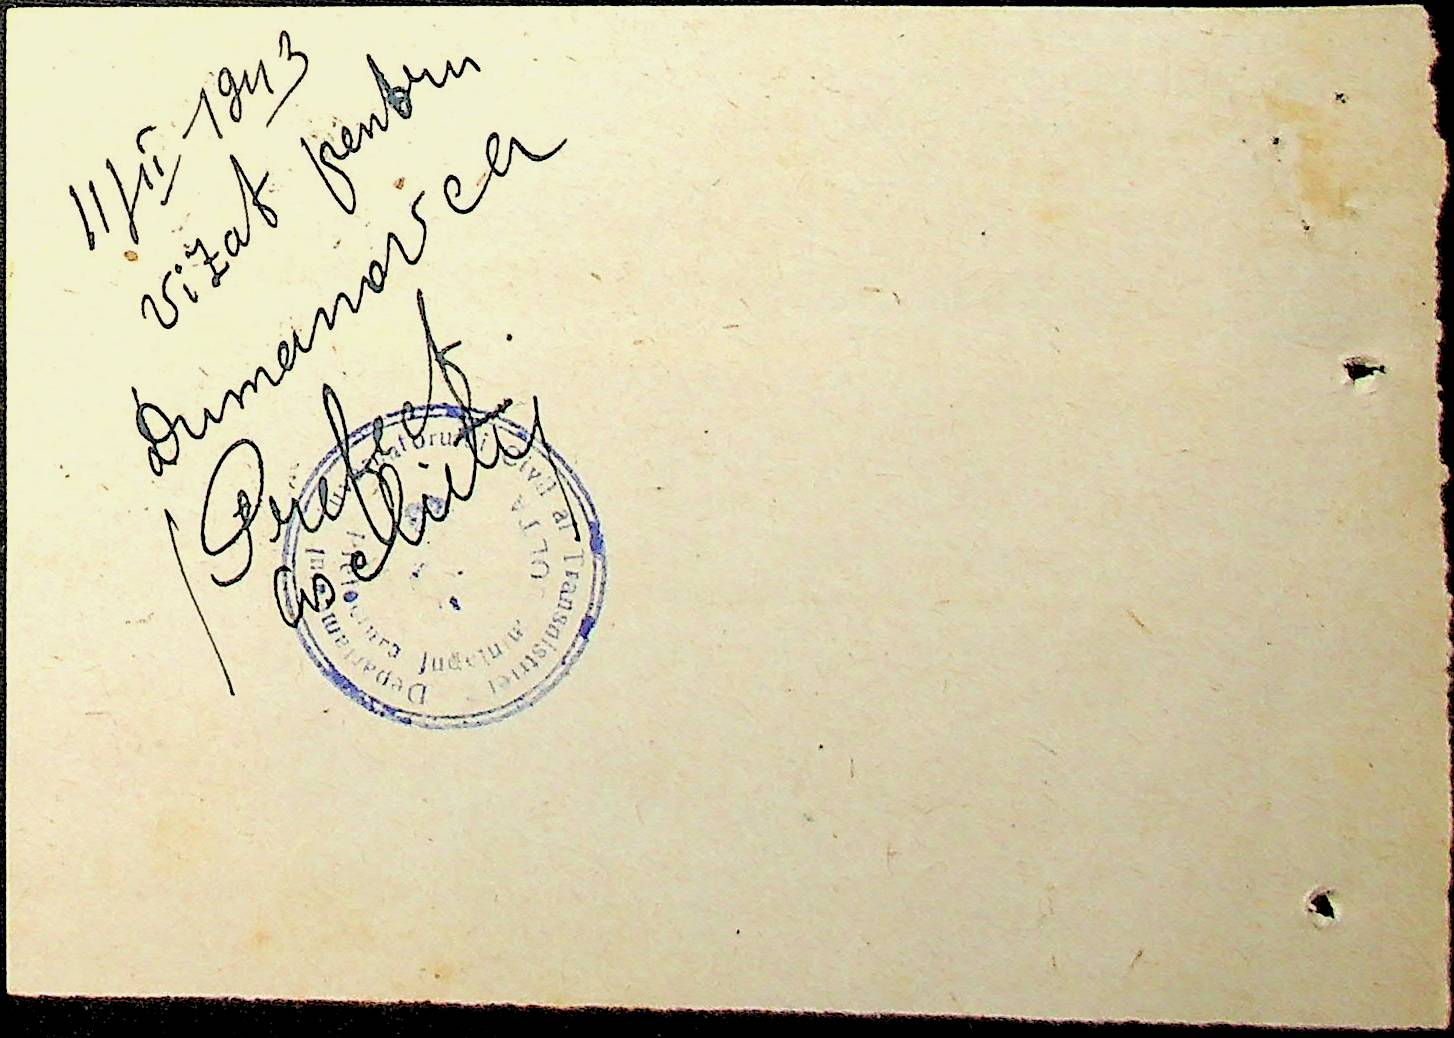 11/II 1943
vizat pentru
Dumanovca
Prefect
Guvernatorului Civil al Transnistriei
Departamentul
Prefectura Județului
GOLTA